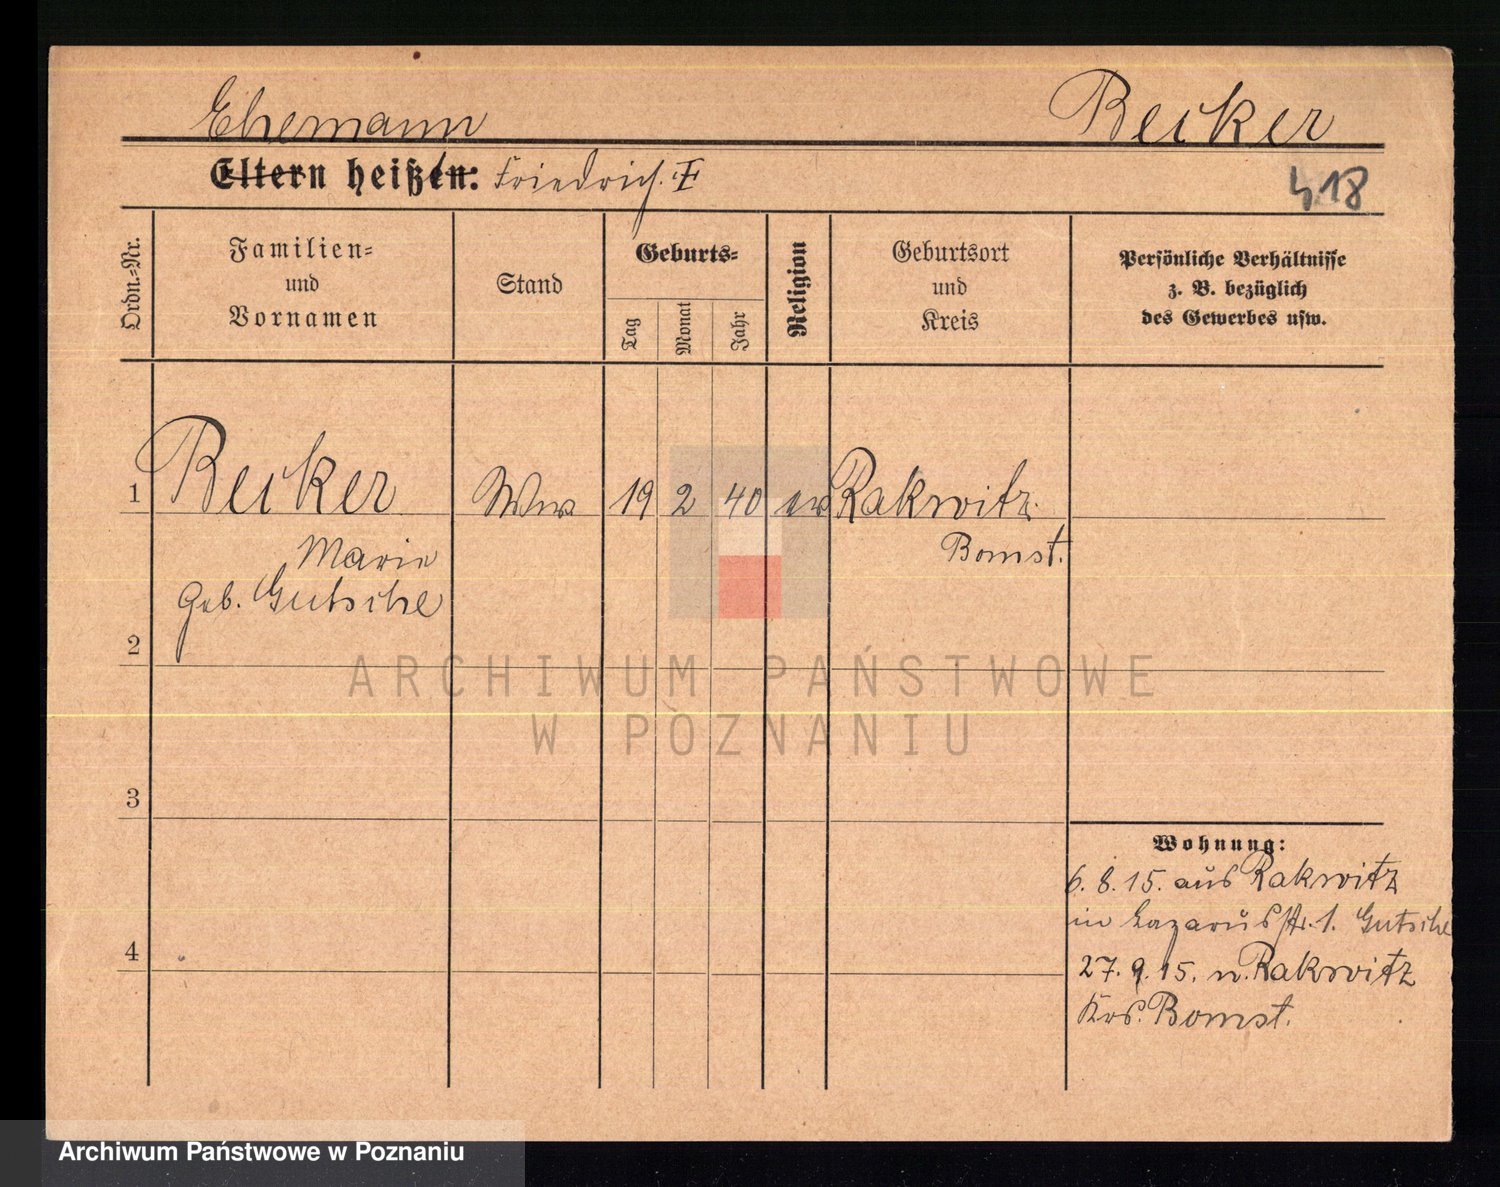 Ehemann Becker
Eltern heißen: Friedrich. †
418
Ordn.-Nr.
Familien-
und
Vornamen
Stand
Geburts-
Tag
Monat
Jahr
Religion
Geburtsort
und
Kreis
Persönliche Verhältnisse
z. B. bezüglich
des Gewerbes usw.
1 Becker Ww 19 2 40 ev Rakwitz
Marie Bomst.
geb. Gutsche
2
3
4
Wohnung:
6. 8. 15. aus Rakwitz
in Lazarusstr. 1. Gutsche
27. 9. 15. n. Rakwitz
Krs. Bomst.
ARCHIWUM PAŃSTWOWE
W POZNANIU
Archiwum Państwowe w Poznaniu